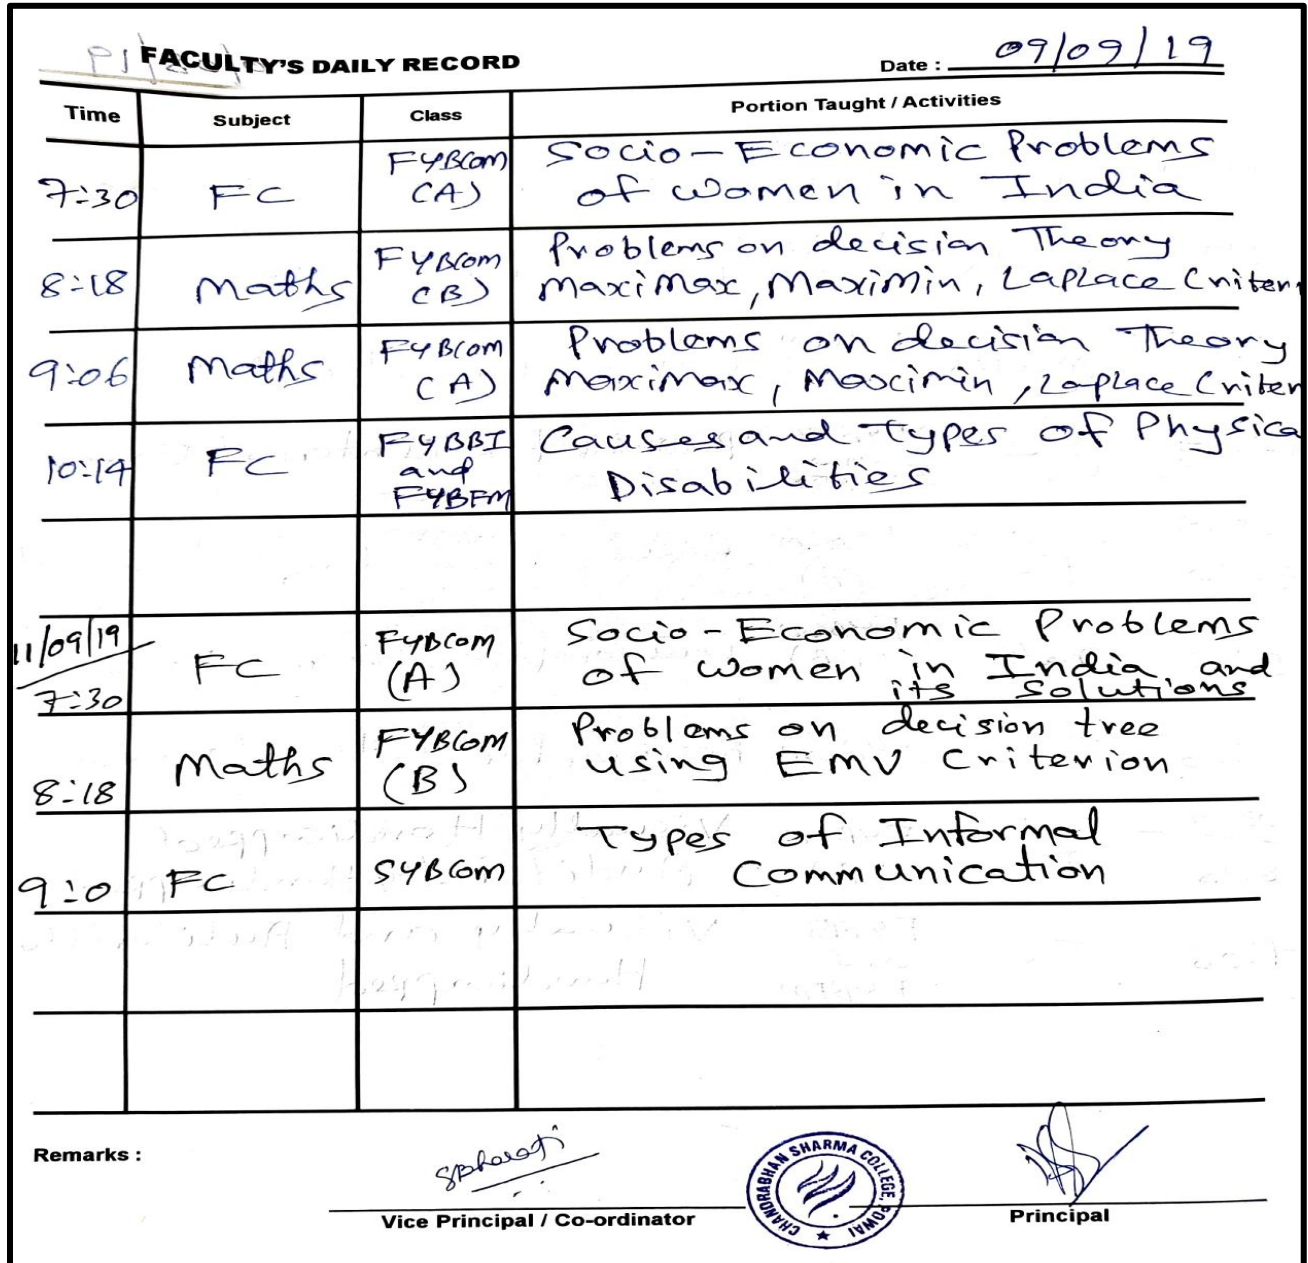 FACULTY'S DAILY RECORD
Date : 09/09/19
Time Subject Class Portion Taught / Activities
7:30 FC FYBCom (A) Socio-Economic Problems
of women in India
8:18 Maths FYBCom (B) Problems on decision Theory
MaxiMax, MaxiMin, Laplace Criter
9:06 Maths FYBCom (A) Problems on decision Theory
MaxiMax, Maximin, Laplace Criter
10:14 FC FYBBI and FYBFM Causes and Types of Physica
Disabilities
11/09/19
7:30 FC FYBCom (A) Socio-Economic Problems
of women in India and
its Solutions
8:18 Maths FYBCom (B) Problems on decision tree
using EMV Criterion
9:0 FC SYBCom Types of Informal
Communication
Remarks :
SBharati
Vice Principal / Co-ordinator
CHANDRABHAN SHARMA COLLEGE, POWAI
Principal